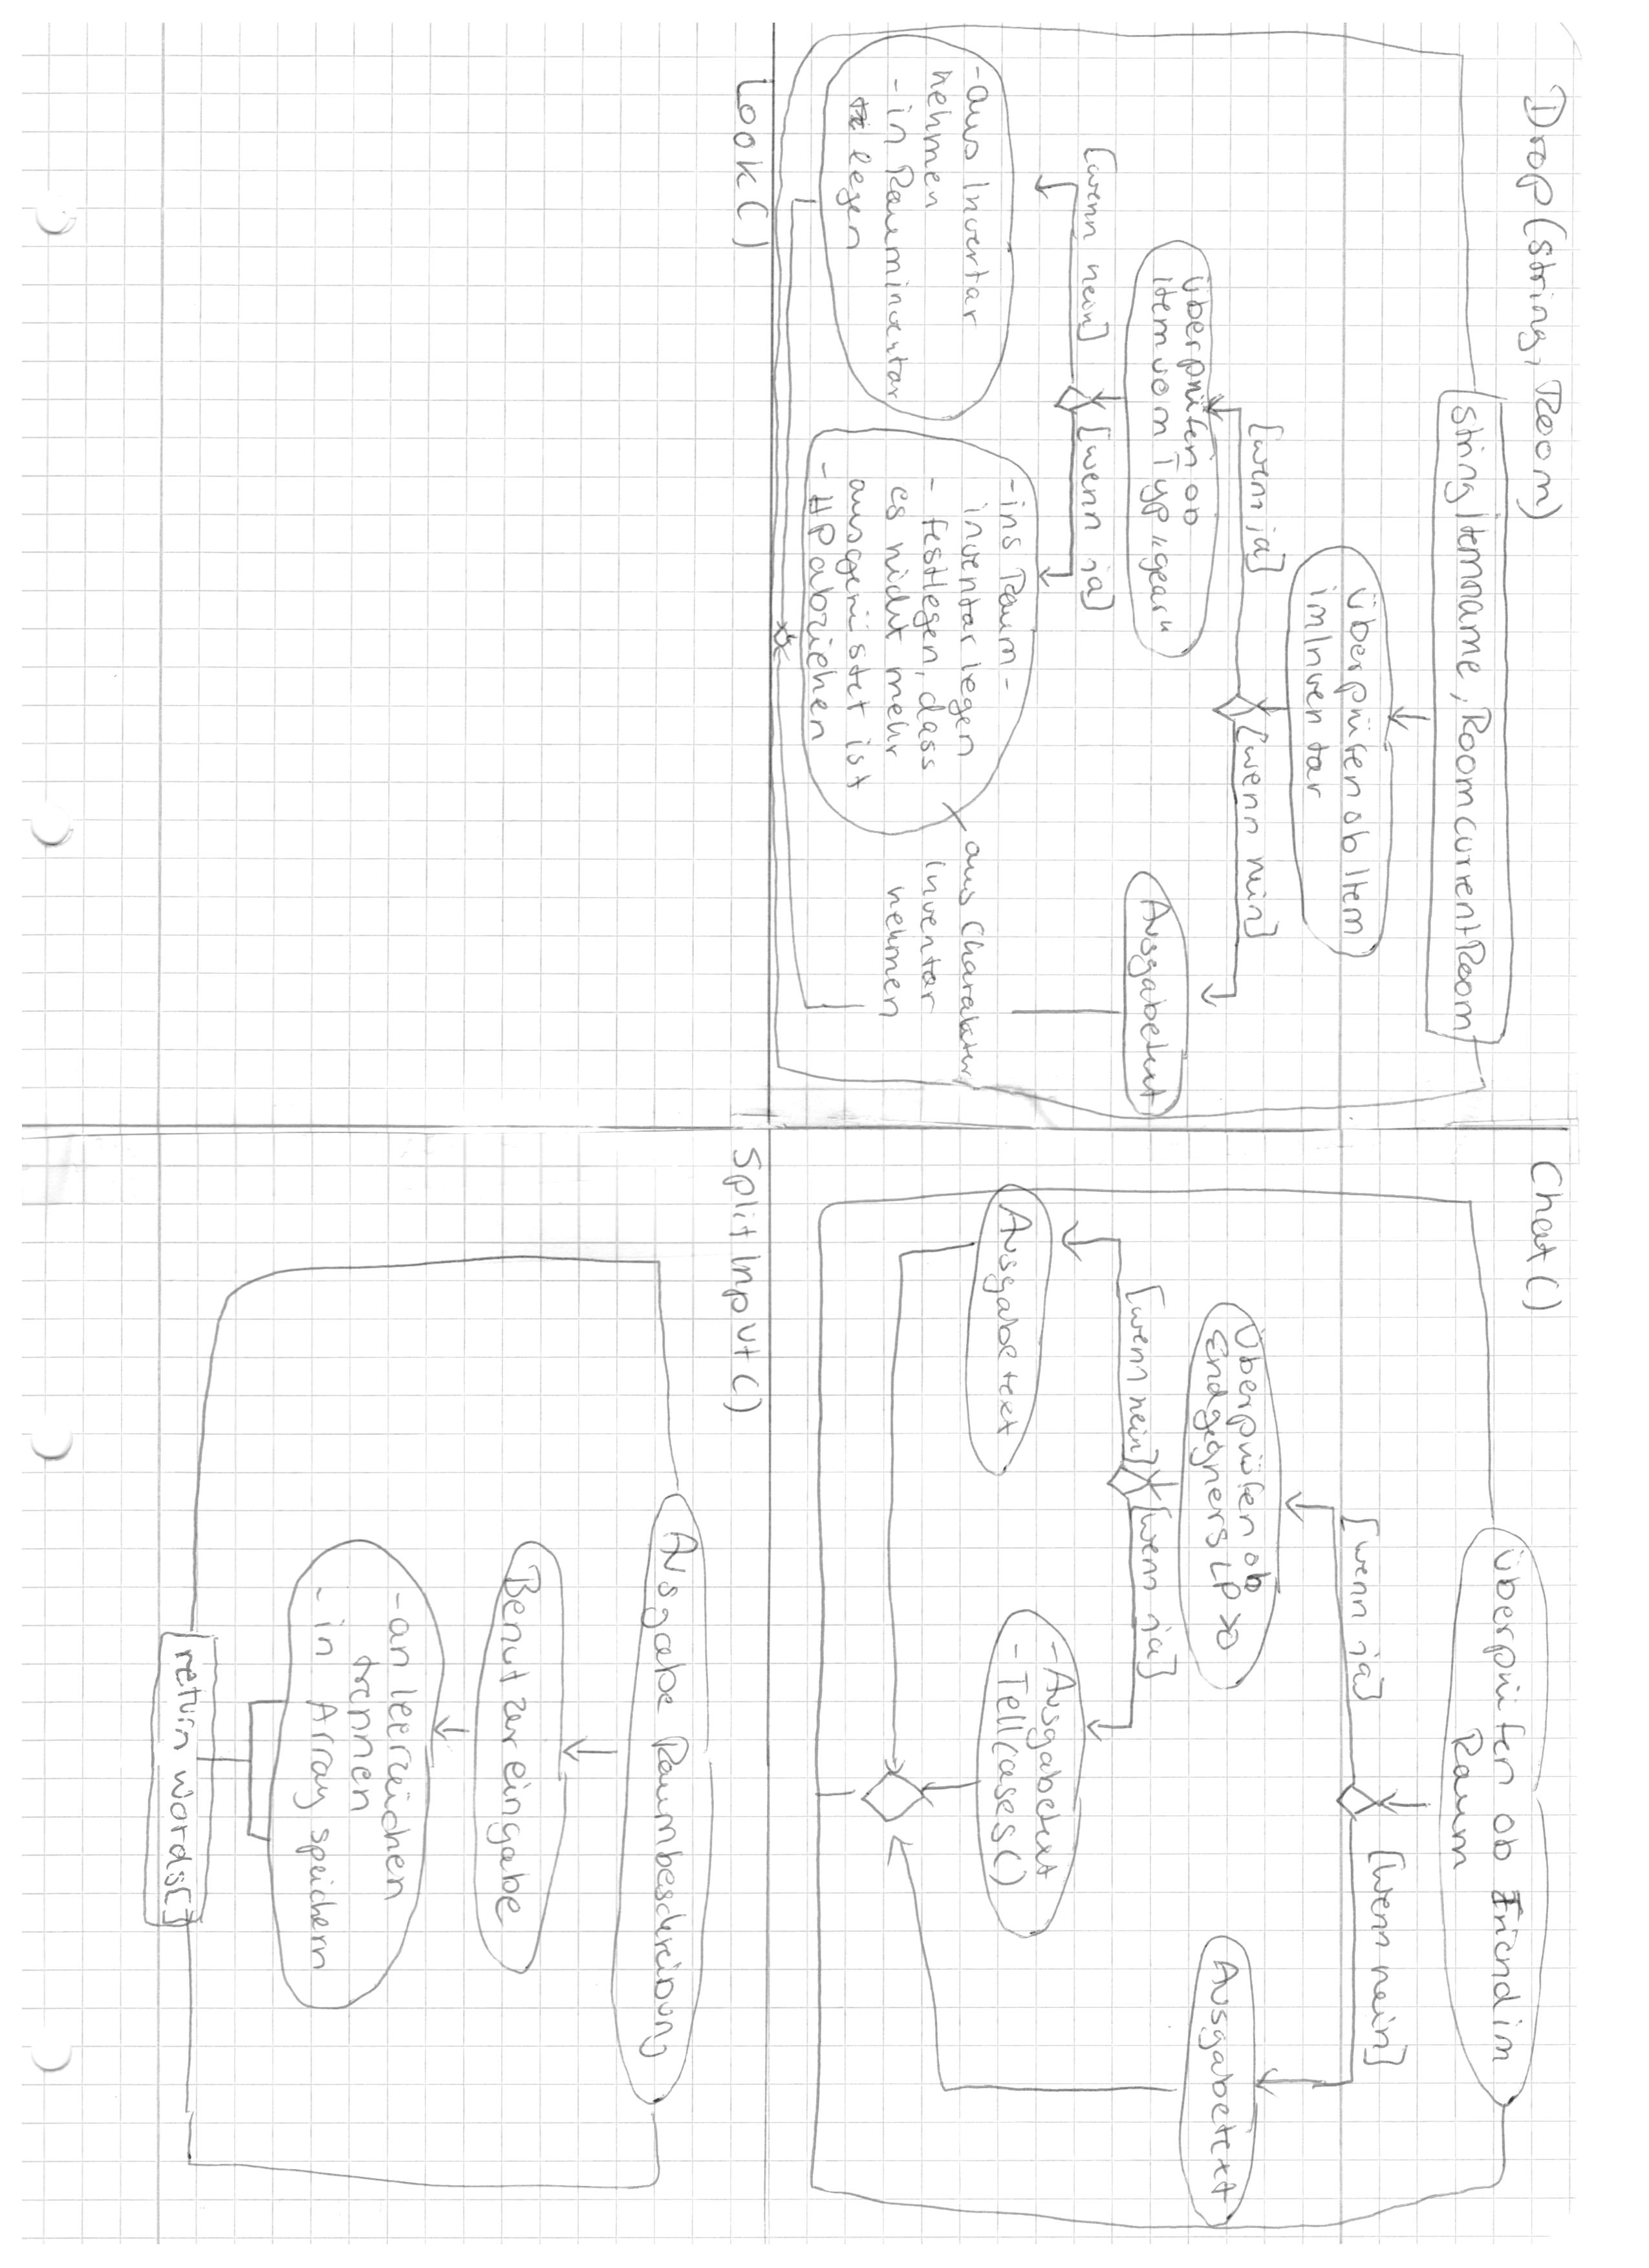 Drop(string, Room)
string Itemname, Room currentRoom
überprüfen ob Item
im Inventar
[wenn ja]
[wenn nein]
überprüfen ob
Item vom Typ „gear"
Ausgabetext
[wenn nein]
[wenn ja]
-aus Inventar
nehmen
-in Rauminventar
legen
-ins Raum-
inventar legen
- festlegen, dass
es nicht mehr
ausgerüstet ist
- HP abziehen
aus Charakter
Inventar
nehmen
Chat()
überprüfen ob Friend im
Raum
[wenn ja]
[wenn nein]
überprüfen ob
Endgegners LP >0
Ausgabetext
[wenn nein]
[wenn ja]
Ausgabetext
-Ausgabetext
-Tellcases()
Look()
SplitInput()
Ausgabe Raumbeschreibung
Benutzereingabe
-an leerzeichen
trennen
- in Array speichern
return words[]